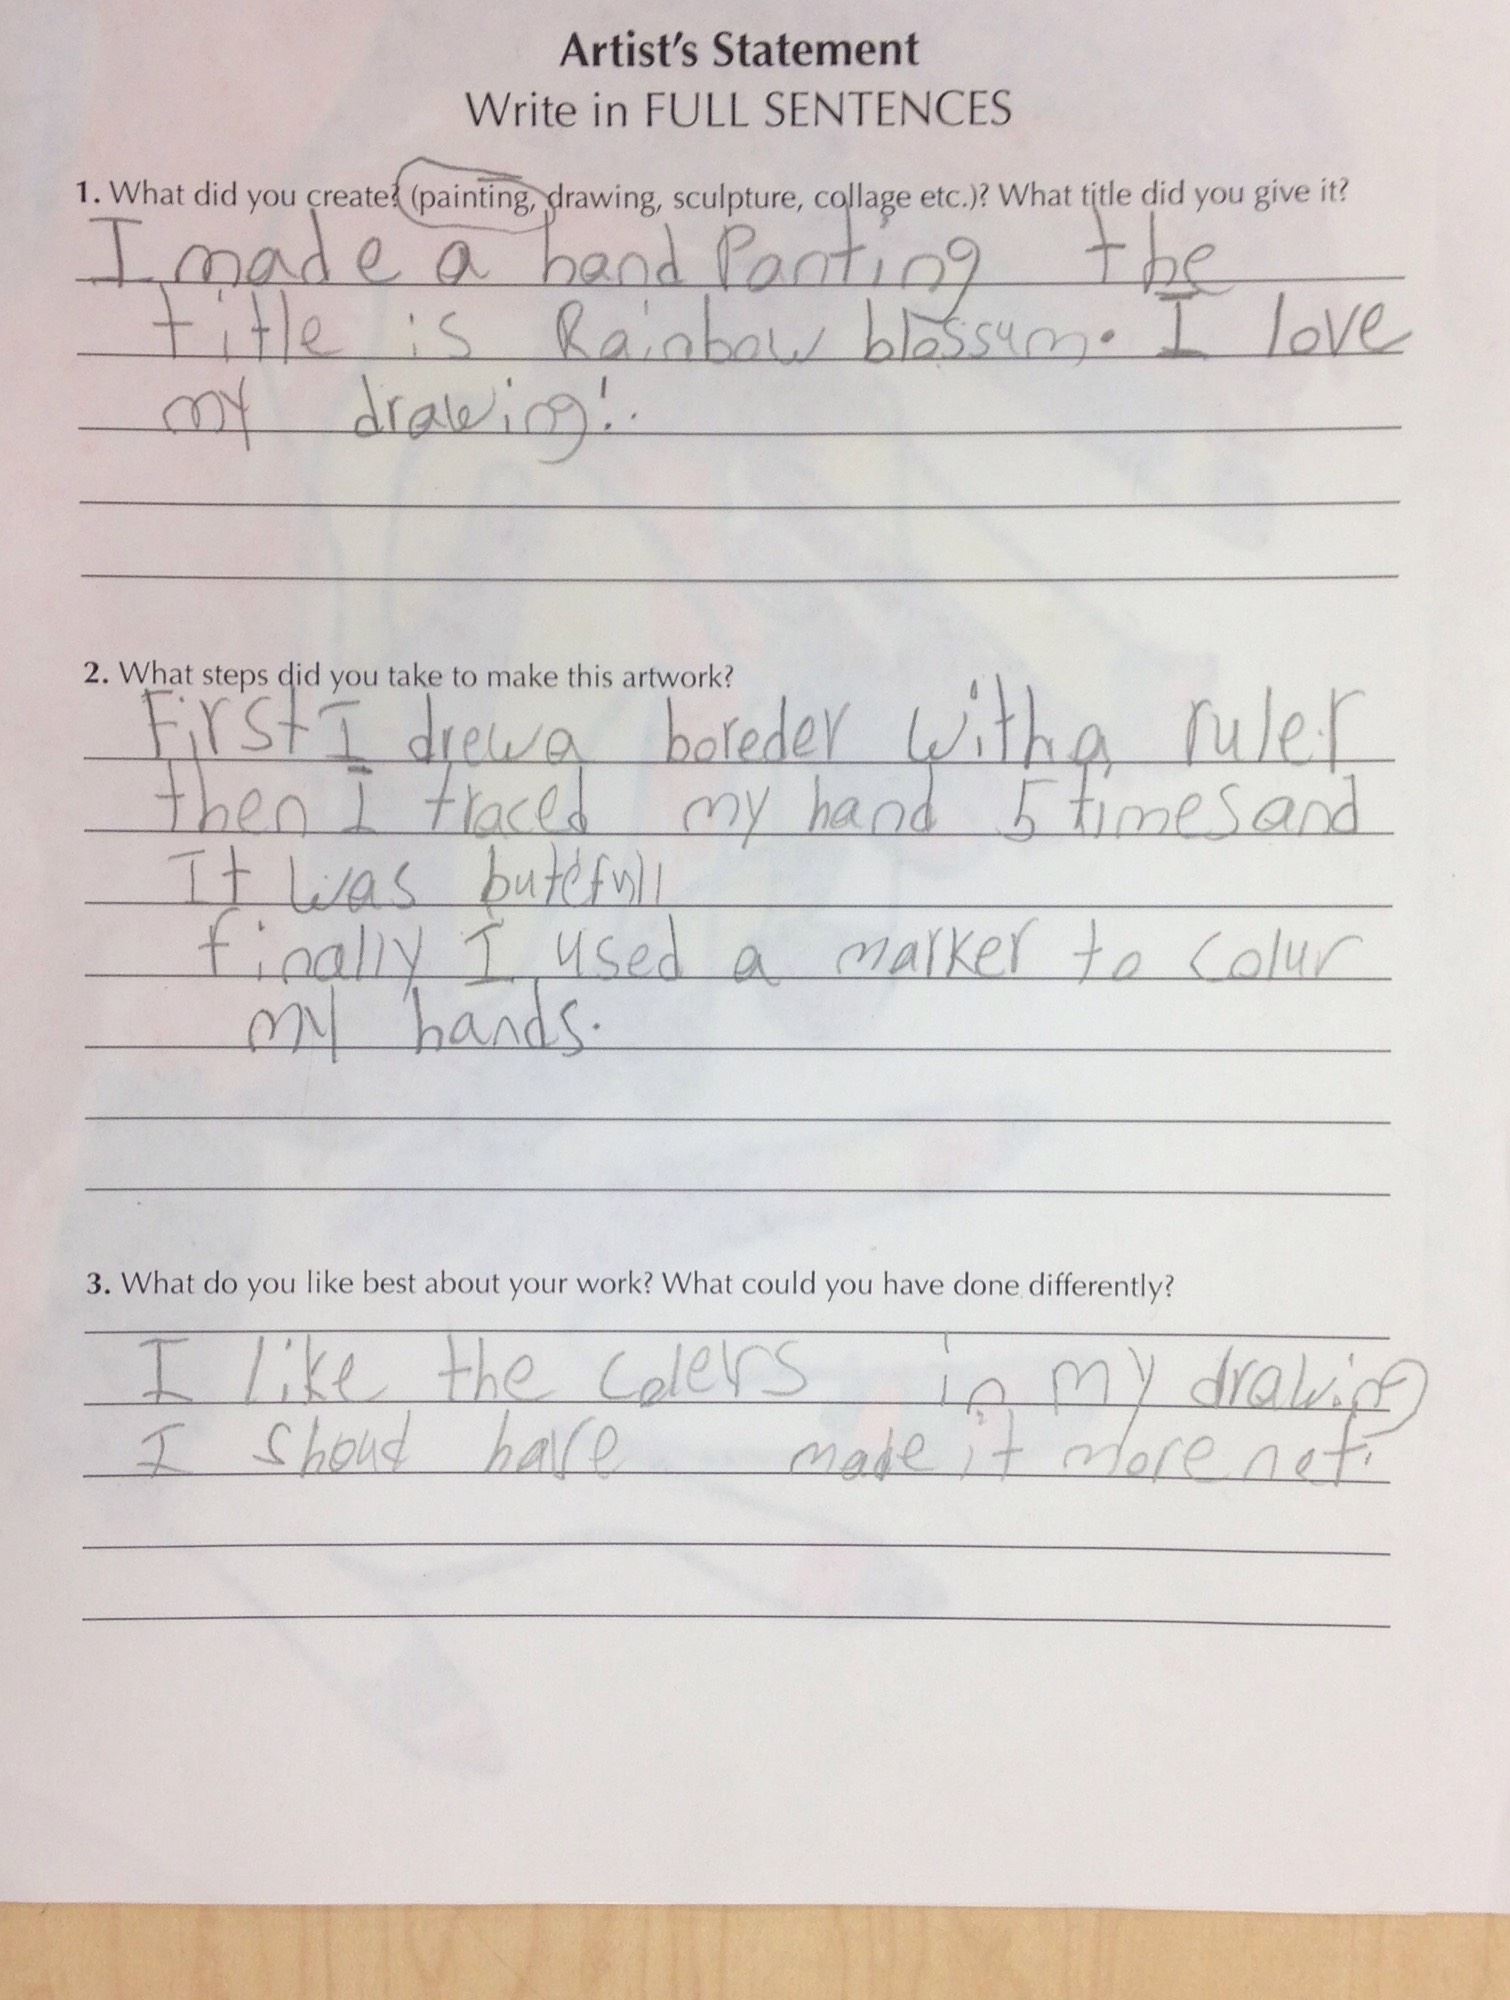 Artist's Statement
Write in FULL SENTENCES
1. What did you create? (painting, drawing, sculpture, collage etc.)? What title did you give it?
I made a hand Panting the
title is Rainbow blossum. I love
my drawing!.
2. What steps did you take to make this artwork?
First I drew a boreder with a ruler
then I traced my hand 5 times and
It was butefull
finally I used a marker to colur
my hands.
3. What do you like best about your work? What could you have done differently?
I like the colers in my drawing
I shoud have made it more net.